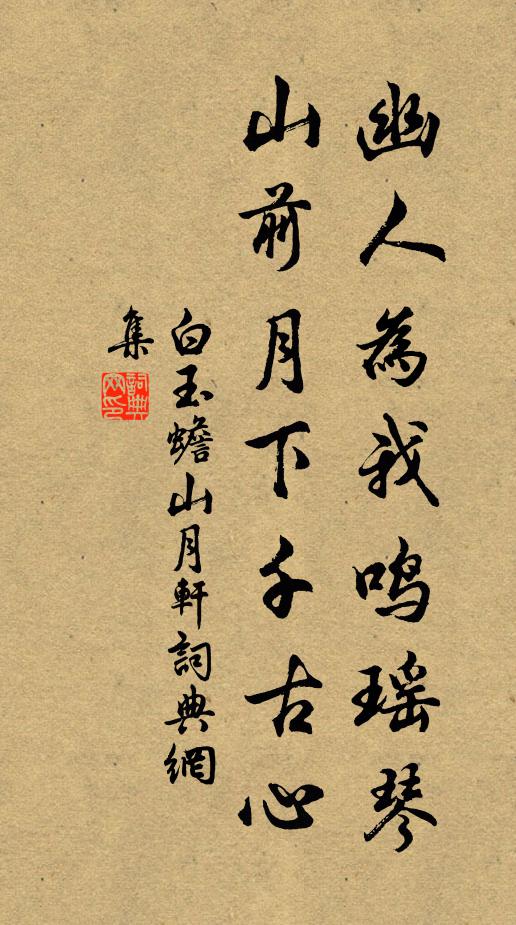 幽人為我鳴瑶琴
山前月下千古心
白玉蟾山月軒詞典網
集
詞典網印